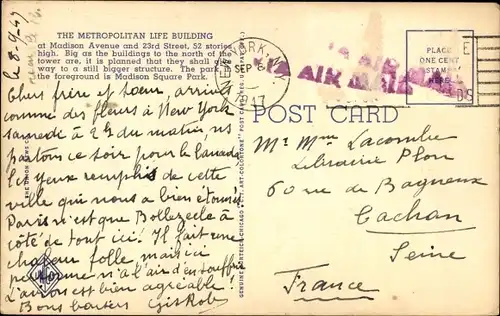 le 8-9-47
THE METROPOLITAN LIFE BUILDING
at Madison Avenue and 23rd Street, 52 stories
high. Big as the buildings to the north of the
tower are, it is planned that they shall give
way to a still bigger structure. The park in
the foreground is Madison Square Park.
Chers frère et sœur, arrivés
comme des fleurs à New York
samedi à 2 h du matin, ns
partons ce soir pour le Canada
les yeux remplis de cette
ville qui nous a bien étonnés
Paris n'est que Bollezeele à
côté de tout ici! Il fait une
chaleur folle, mais ici
personne n'a l'air d'en souffrir
L'avion est bien agréable!
Bons baisers
NEW YORK, N.Y.
SEP 8
1947
AIR MAIL
PLACE
ONE CENT
STAMP
HERE
POST CARD
Mr Mme Lacombe
Librairie Plon
60 rue de Bagneux
Cachan
Seine
France